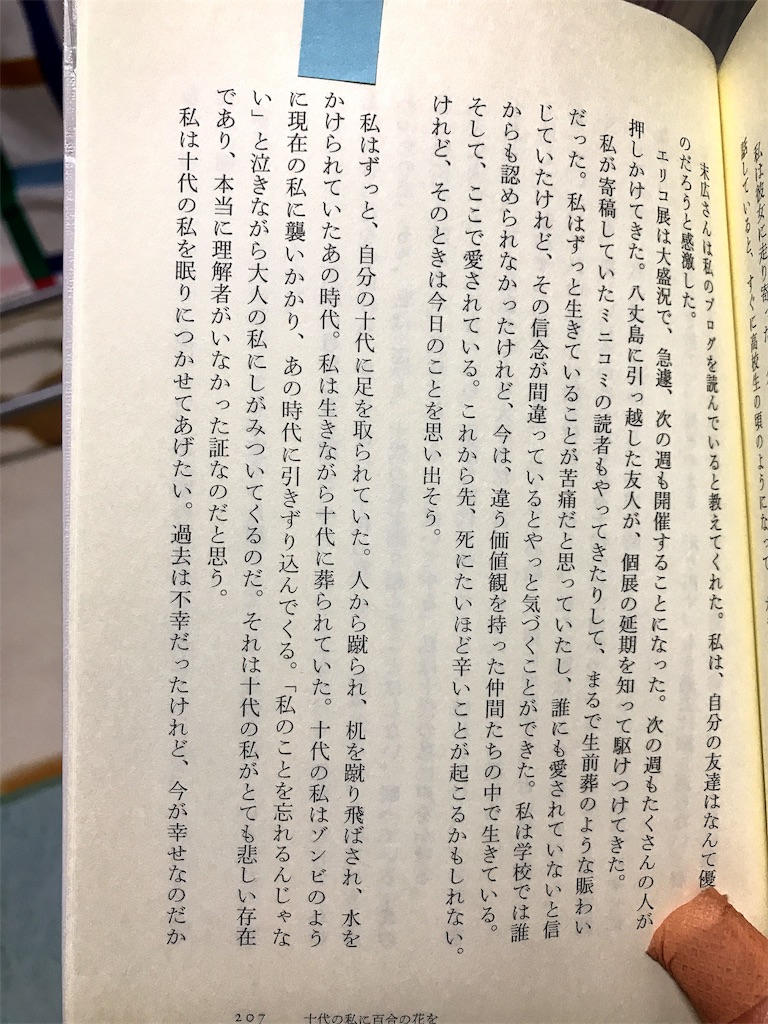 私は彼女に走り寄った
話していると、すぐに高校生の頃のようになって
末広さんは私のブログを読んでいると教えてくれた。私は、自分の友達はなんて優
のだろうと感激した。
エリコ展は大盛況で、急遽、次の週も開催することになった。次の週もたくさんの人が
押しかけてきた。八丈島に引っ越した友人が、個展の延期を知って駆けつけてきた。
私が寄稿していたミニコミの読者もやってきたりして、まるで生前葬のような賑わい
だった。私はずっと生きていることが苦痛だと思っていたし、誰にも愛されていないと信
じていたけれど、その信念が間違っているとやっと気づくことができた。私は学校では誰
からも認められなかったけれど、今は、違う価値観を持った仲間たちの中で生きている。
そして、ここで愛されている。これから先、死にたいほど辛いことが起こるかもしれない。
けれど、そのときは今日のことを思い出そう。
私はずっと、自分の十代に足を取られていた。人から蹴られ、机を蹴り飛ばされ、水を
かけられていたあの時代。私は生きながら十代に葬られていた。十代の私はゾンビのよう
に現在の私に襲いかかり、あの時代に引きずり込んでくる。「私のことを忘れるんじゃな
い」と泣きながら大人の私にしがみついてくるのだ。それは十代の私がとても悲しい存在
であり、本当に理解者がいなかった証なのだと思う。
私は十代の私を眠りにつかせてあげたい。過去は不幸だったけれど、今が幸せなのだか
207 十代の私に百合の花を